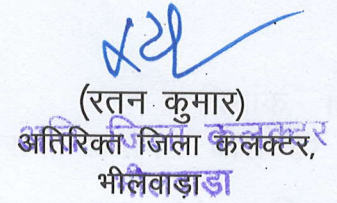 (रतन कुमार)
अतिरिक्त जिला कलक्टर,
भीलवाड़ा